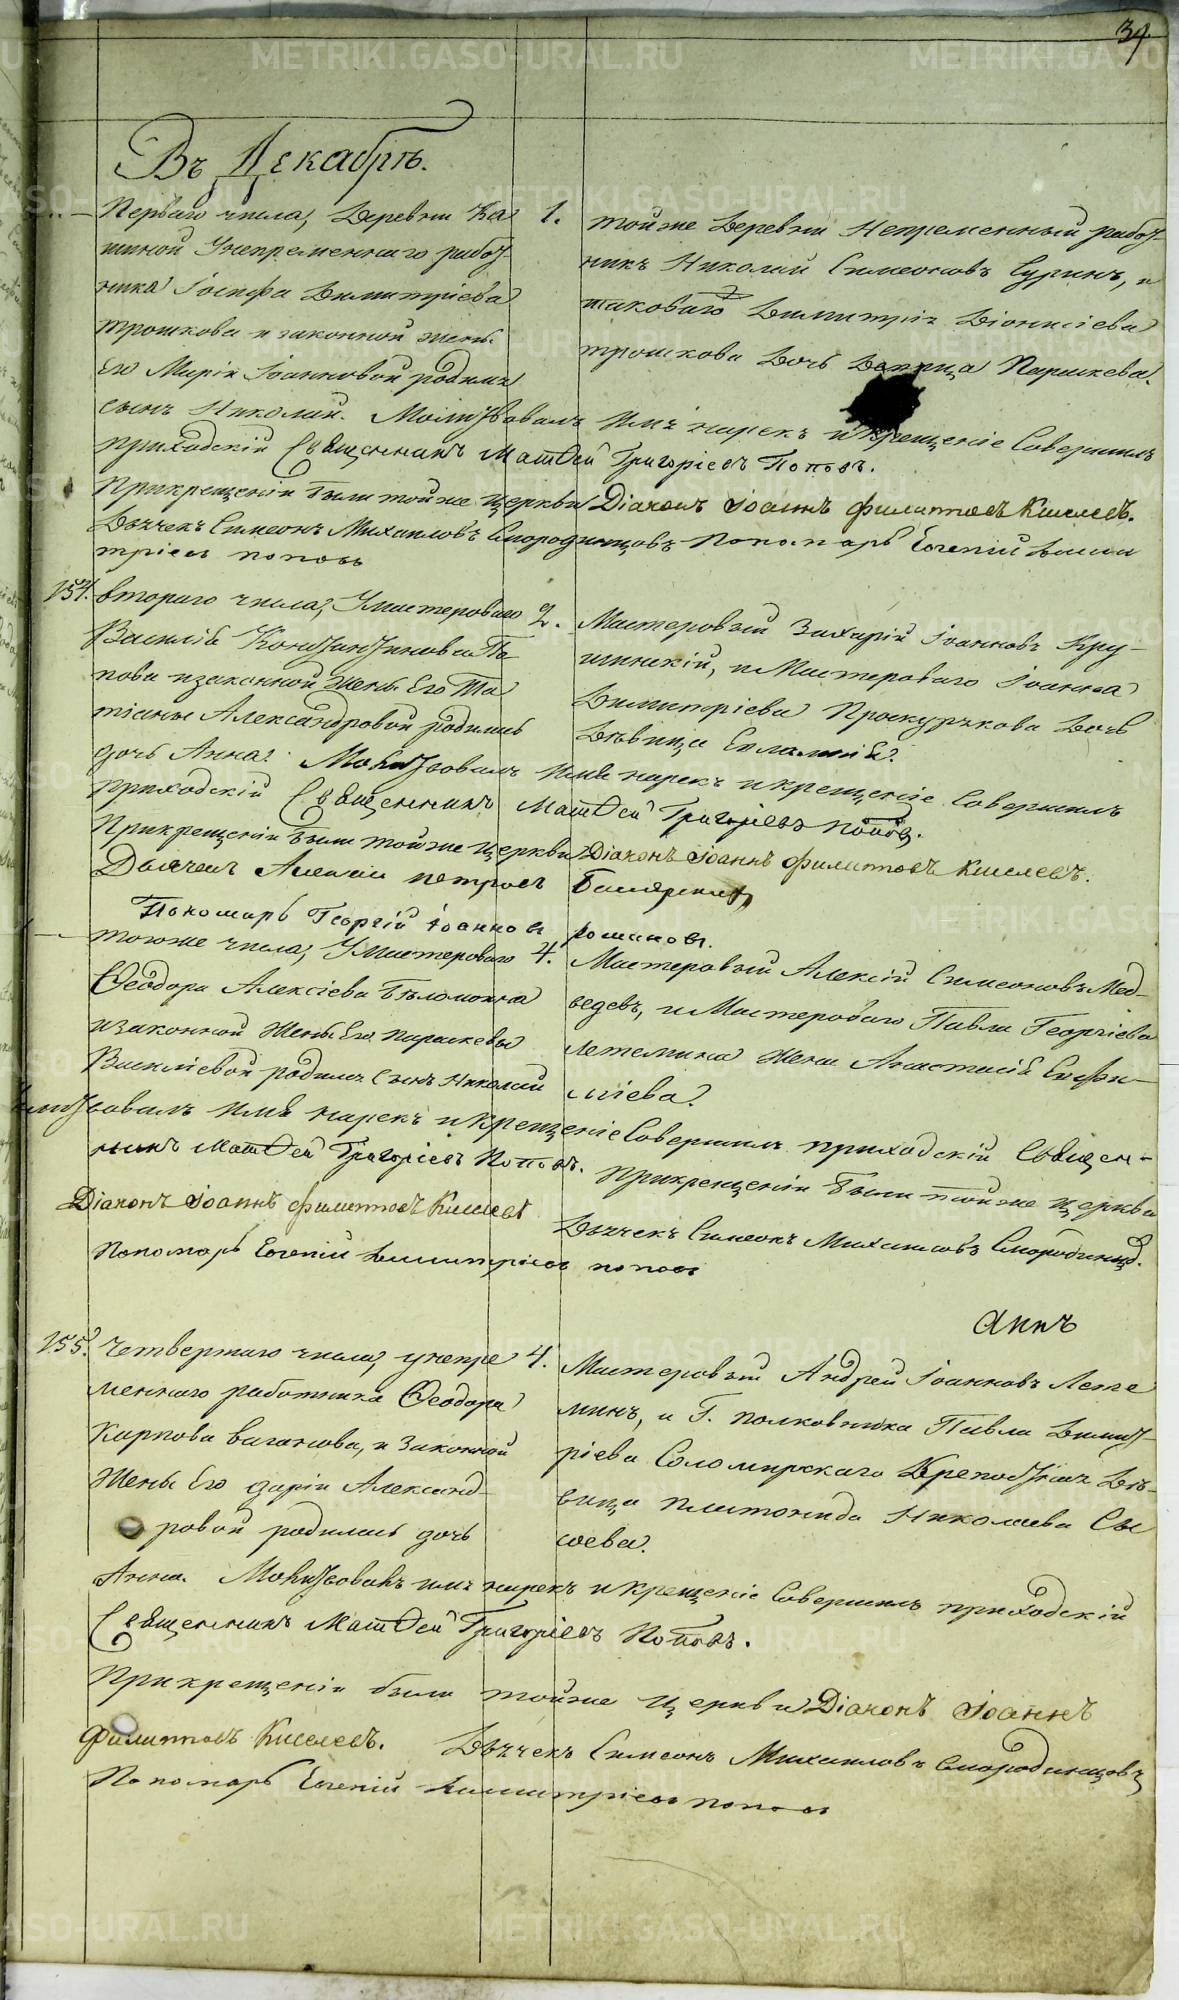 37
Въ Декабрѣ.
Перваго числа, Деревни Ка
шиной Унепременнаго работ-
ника Іосифа Димитріева
трошкова и законной жены
Его Маріи Іоанновой родился
сынъ Николай. Молитвовалъ имя нарекъ и крещеніе Совершилъ
приходскій Священникъ Матѳей Григоріевъ Поповъ.
При крещеніи были тойже церкви Діаконъ Іоаннъ Филиповъ Киселевъ.
Дьячекъ Симеонъ Михаиловъ Смородинцовъ Пономарь Евгеній Дими
тріевъ поповъ
1. тойже Деревни Непременный работ-
никъ Николай Симеоновъ Суринъ, и
таковаго Димитрія Діонисіева
трошкова Дочь Девица Параскева.
154. втораго числа, Умастероваго
Василія Константинова По
пова и законной жены Его Та
тіаны Александровой родилась
дочь Анна. Молитвовалъ имя нарекъ и крещеніе Совершилъ
приходскій Священникъ Матѳей Григорьевъ Поповъ.
При крещеніи были тойже церкви Діаконъ Іоаннъ Филиповъ Киселевъ.
Дьячекъ Алексій петровъ
Пономарь Георгій Іоанновъ
2. Мастеровый Захарій Іоанновъ Кру-
шинскій, и Мастероваго Іоанна
Димитріева Проскурякова Дочь
Дѣвица Евлампія.
тогоже числа, Умастероваго
Ѳеодора Алексіева Бѣломоина
и законной жены Его Параскевы
Василіевой родился Сынъ Николай
Молитвовалъ имя нарекъ и крещеніе Совершилъ приходскій Священ-
никъ Матѳей Григорьевъ Поповъ. При крещеніи были тойже церкви
Діаконъ Іоаннъ Филиповъ Киселевъ
Дьячекъ Симеонъ Михаиловъ Смородинцов.
Пономарь Евгеній Димитріевъ поповъ
4. Мастеровый Алексій Симеоновъ Мед-
ведевъ, и Мастероваго Павла Георгіева
Летемина жена Анастасія Евфи-
міева.
Аннъ
155. Четвертаго числа, у непре
меннаго работника Ѳеодора
Карпова ваганова, и законной
жены Его Даріи Александ-
ровой родилась дочь
Анна. Молитвовалъ имя нарекъ и крещеніе Совершилъ приходскій
Священникъ Матѳей Григорьевъ Поповъ.
При крещеніи были тойже церкви Діаконъ Іоаннъ
Филиповъ Киселевъ. Дьячекъ Симеонъ Михаиловъ Смородинцовъ
Пономарь Евгеній Димитріевъ поповъ
4. Мастеровый Андрей Іоанновъ Лете
минъ, и Г. полковника Павла Димит-
ріева Соломирскаго Крепостная Дѣ-
вица Платонида Николаева Сы
соева.
METRIKI.GASO-URAL.RU